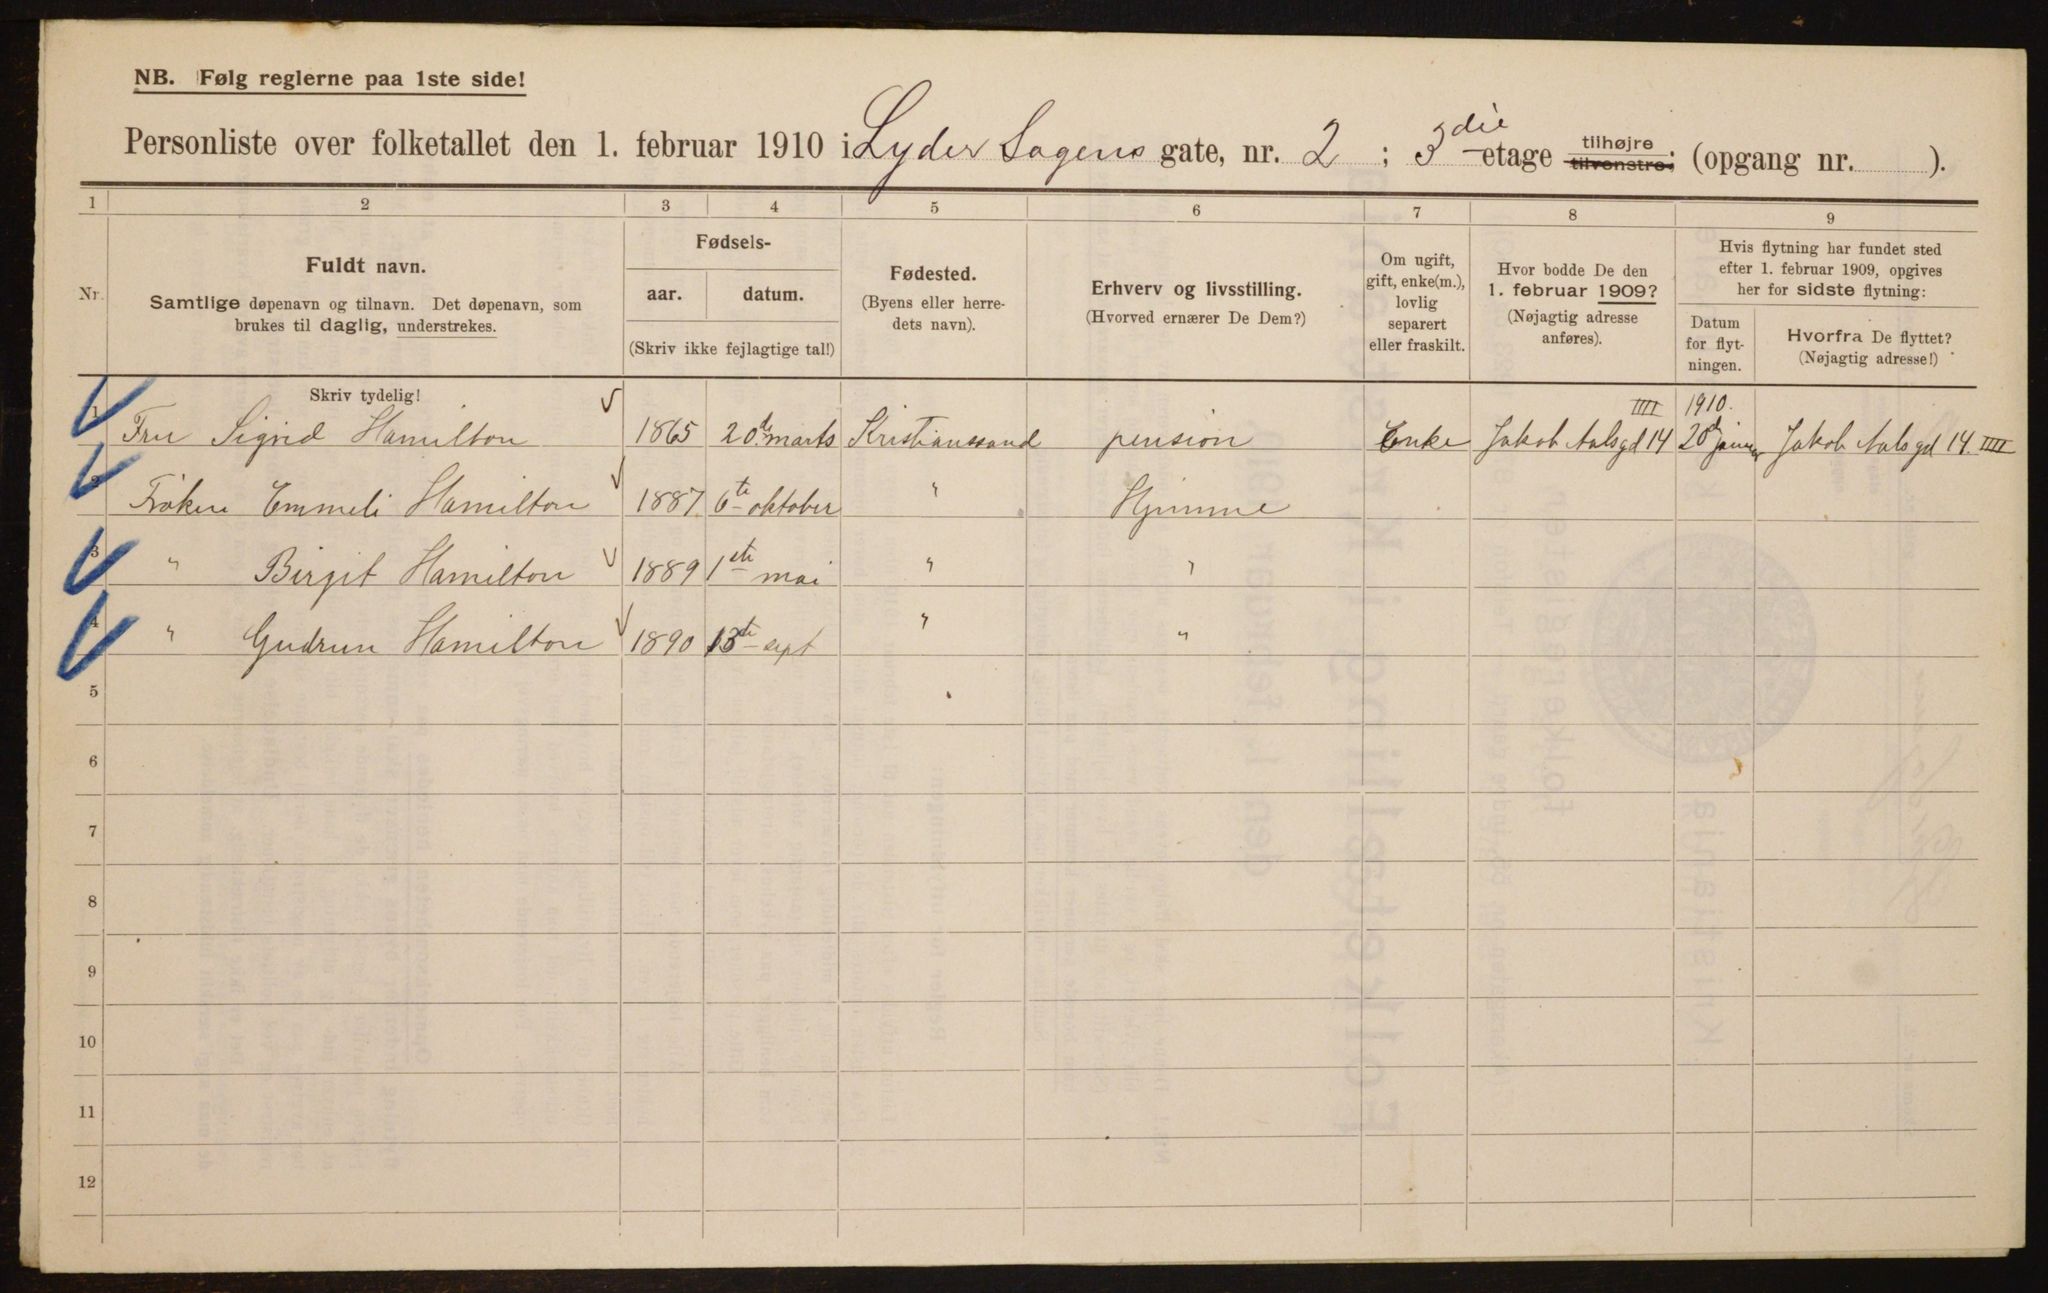 NB. Følg reglerne paa 1ste side!
Personliste over folketallet den 1. februar 1910 i Lyder Sagens gate, nr. 2 ; 3die etage tilhøjre tilvenstre; (opgang nr. ).
1 2 3 4 5 6 7 8 9
Nr.
Fuldt navn.
Samtlige døpenavn og tilnavn. Det døpenavn, som
brukes til daglig, understrekes.
Fødsels-
aar. datum.
(Skriv ikke fejlagtige tal!)
Fødested.
(Byens eller herre-
dets navn).
Erhverv og livsstilling.
(Hvorved ernærer De Dem?)
Om ugift,
gift, enke(m.),
lovlig
separert
eller fraskilt.
Hvor bodde De den
1. februar 1909?
(Nøjagtig adresse
anføres).
Hvis flytning har fundet sted
efter 1. februar 1909, opgives
her for sidste flytning:
Datum
for flyt-
ningen.
Hvorfra De flyttet?
(Nøjagtig adresse!)
Skriv tydelig!
1 Fru Sigrid Hamilton 1865 20de marts Kristianssand pension Enke Jakob Aalsgd 14 IIII 1910. 20de januar Jakob Aalsgd 14. IIII
2 Frøken Emmeli Hamilton 1887 6te oktober " Hjemme
3 " Birgit Hamilton 1889 1ste mai " "
4 " Gudrun Hamilton 1890 13te sept " "
5
6
7
8
9
10
11
12